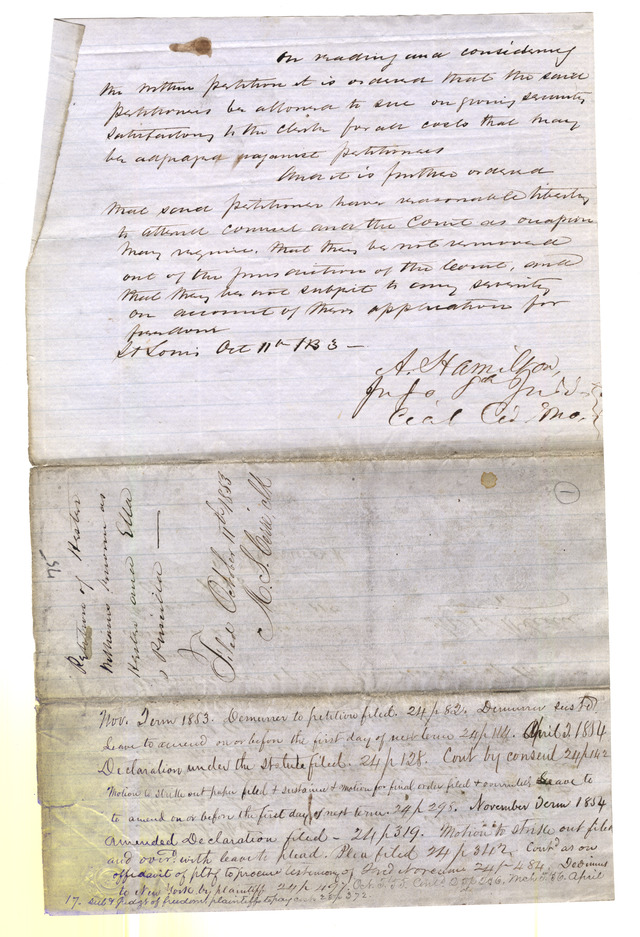 On reading and considering
the within petition it is ordered that the said
petitioners be allowed to sue on giving security
satisfactory to the clerk for all costs that may
be adjudged against petitioners
And it is further ordered
that said petitioner have reasonable liberty
to attend counsel and the Court as occasion
may require, that they be not removed
out of the jurisdiction of the Court, and
that they be not subject to any severity
on account of their application for
freedom
St Louis Oct 11th 1853 —
A. Hamilton,
Judge 8th Judi-
cial Cir. Mo.
1
75
Petition of Hester
Williams known as
Hester and Ella
& Priscilla —
Filed October 11th 1853
M. S. Clk
Nov. Term 1853. Demurrer to petition filed. 24 p 82. Demurrer sustd
leave to amend on or before the first day of next term 24 p 114. April 3, 1854
Declaration under the statute filed. 24 p 128. Cont by consent 24 p 142
Motion to strike out paper filed & sustained & motion for final order filed & overruled Leave to
to amend on or before the first day of next term 24 p 295. November Term 1854
amended Declaration filed – 24 p 319. Motion to strike out filed
and overd. with leave to plead. Plea filed 24 p 342. Contd as on
affidavit of plff to procure testimony of 24 p 484. Dedimus
to New York by plaintiff 24 p 497. Oct. T. Contd April
17. Subt Judgt of freedom, plaintiffs to pay costs 372